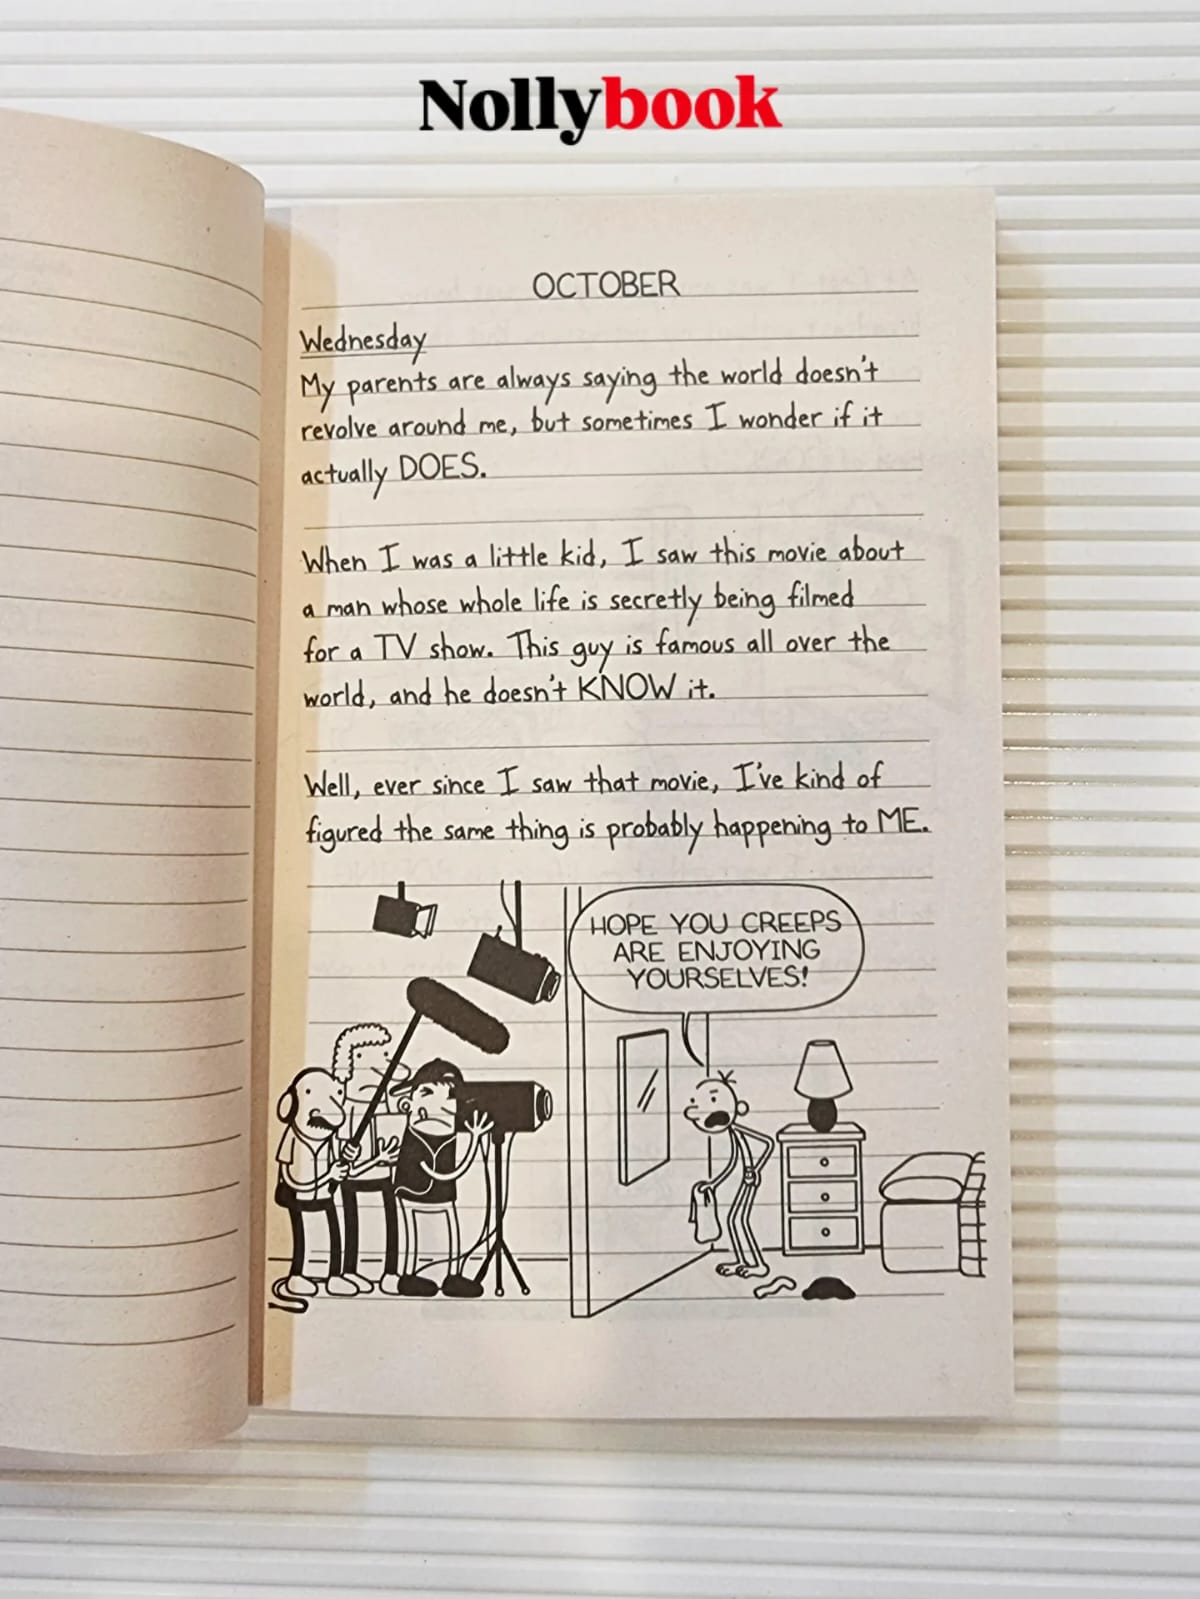 Nollybook
OCTOBER
Wednesday
My parents are always saying the world doesn't
revolve around me, but sometimes I wonder if it
actually DOES.
When I was a little kid, I saw this movie about
a man whose whole life is secretly being filmed
for a TV show. This guy is famous all over the
world, and he doesn't KNOW it.
Well, ever since I saw that movie, I've kind of
figured the same thing is probably happening to ME.
HOPE YOU CREEPS
ARE ENJOYING
YOURSELVES!